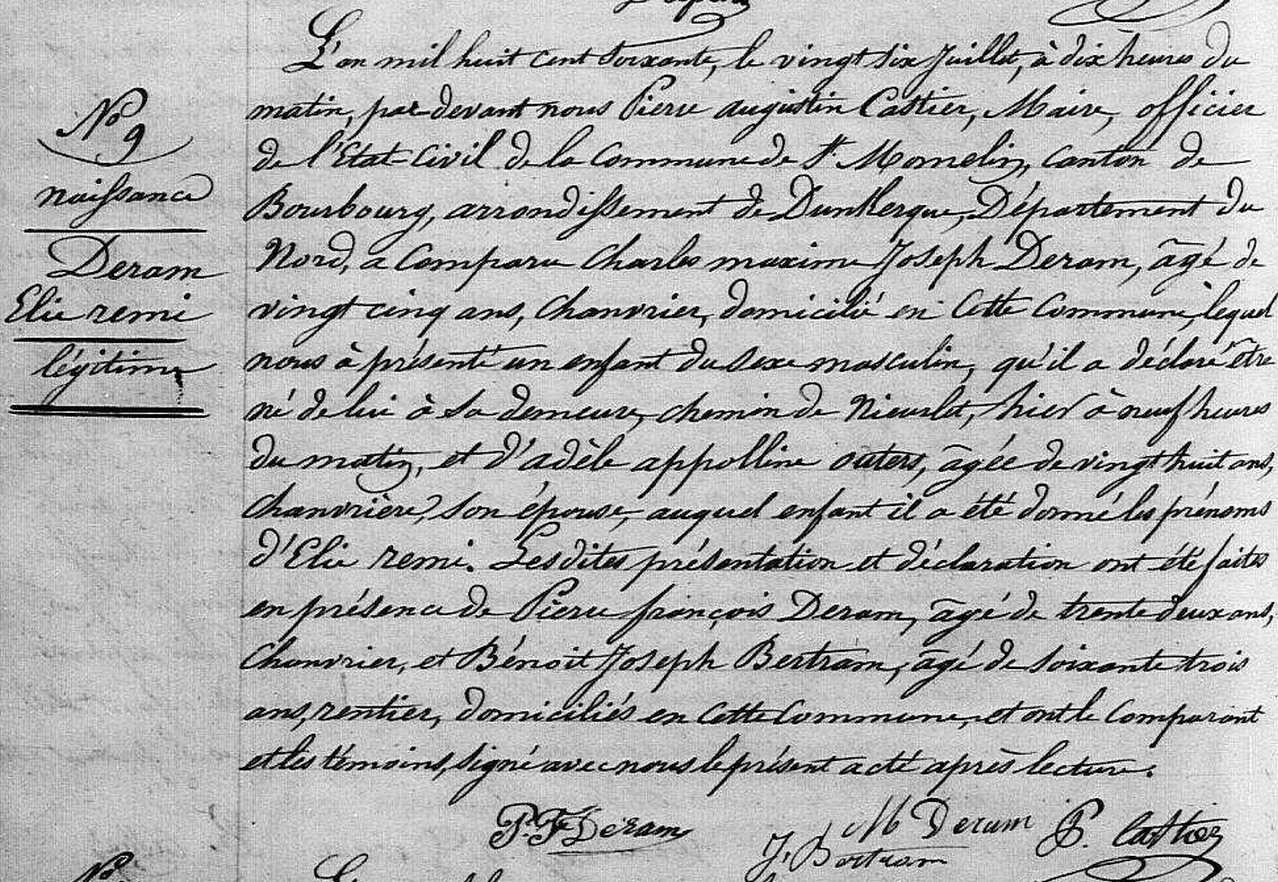 No 9
naissance
Deram
Elie remi
légitime
L'an mil huit cent soixante, le vingt six Juillet, à dix heures du
matin, par devant nous Pierre augustin Castier, Maire, officier
de l'Etat-Civil de la Commune de St. Momelin, canton de
Bourbourg, arrondissement de Dunkerque, Département du
Nord, a Comparu Charles maxime Joseph Deram, âgé de
vingt cinq ans, Chanvrier, domicilié en Cette Commune, lequel
nous à présenté un enfant du sexe masculin, qu'il a déclaré être
né de lui à sa demeure, chemin de Nieurlet, hier à neuf heures
du matin, et d'adèle appolline outers, âgée de vingt huit ans,
chanvrière, son épouse, auquel enfant il a été donné les prénoms
d'Elie remi. Lesdites présentation et déclaration ont été faites
en présence de Pierre françois Deram, âgé de trente deux ans,
Chanvrier, et Bénoit Joseph Bertram, âgé de soixante trois
ans, rentier, domiciliés en Cette Commune, et ont le Comparant
et les témoins, signé avec nous le présent acte après lecture.
P. F. Deram
M Deram
P. Castier
J, Bertram